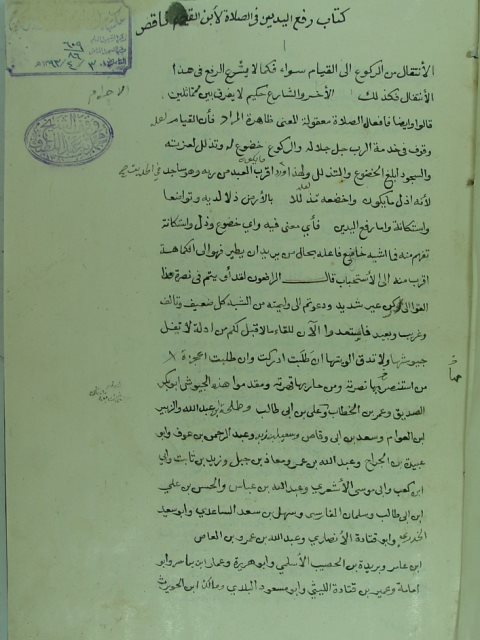 كتاب رفع اليدين في الصلاة لابن القيم ناقص
الأنتقال من الركوع الى القيام سواء فكما لا يشرع الرفع في هذا
الأنتقال فكذلك الأخر والشارع حكيم لا يفرق بين متماثلين
قالوا وايضا فافعال الصلاة معقولة المعنى ظاهرة المراد فأن القيام
وقوف في خدمة الرب جل جلاله والركوع خضوع له وتذلل لعزيته
والسجود ابلغ الخضوع والتذلل ولهذا اقرب العبد من ربه وهو ساجد
لأنه اذل مايكون واخضعه تذللا بالأرض ذلا لديه وتواضعا
واستكانة واما رفع اليدين فأي معنى فيه واي خضوع وذل واستكانة
تفهم منه في الشبه فاعله بحال من يريد ان يطير فهو الى الكراهة
اقرب منه الى الأستحباب قال الرافعون لقد في نصرة هذا
القول غير شديد ودعوتم الى واجبته من الشبه كل ضعيف وتالف
وغريب وبعيد فاستعدوا الآن للقاء مالا قبل لكم من ادلة لا تفل
جيوشها ولا تدق الويتها ان طلبت ادركت وان طلبت
من استنصر بها نصرته ومن حاربها قهرته ومقدموا هذه الجيوش ابو بكر
الصديق وعمر بن الخطاب وعلي بن ابي طالب وطلحة بن عبيد الله والزبير
ابن العوام وسعد بن ابي وقاص وسعيد بن زيد وعبد الرحمن بن عوف وابو
عبيدة بن الجراح وعبد الله بن عمر ومعاذ بن جبل وزيد بن ثابت وابي
ابن كعب وابي موسى الأشعري وعبد الله بن عباس والحسن بن علي
ابن ابي طالب وسلمان الفارسي وسهل بن سعد الساعدي وابو سعيد
الخدري وابو قتادة الأنصاري وعبد الله بن عمرو بن العاص
ابن عامر وبريدة بن الحصيب الأسلمي وابو هريرة وعمار بن ياسر وابو
امامة وعمير بن قتادة الليثي وابو مسعود البدري ومالك ابن الحويرث